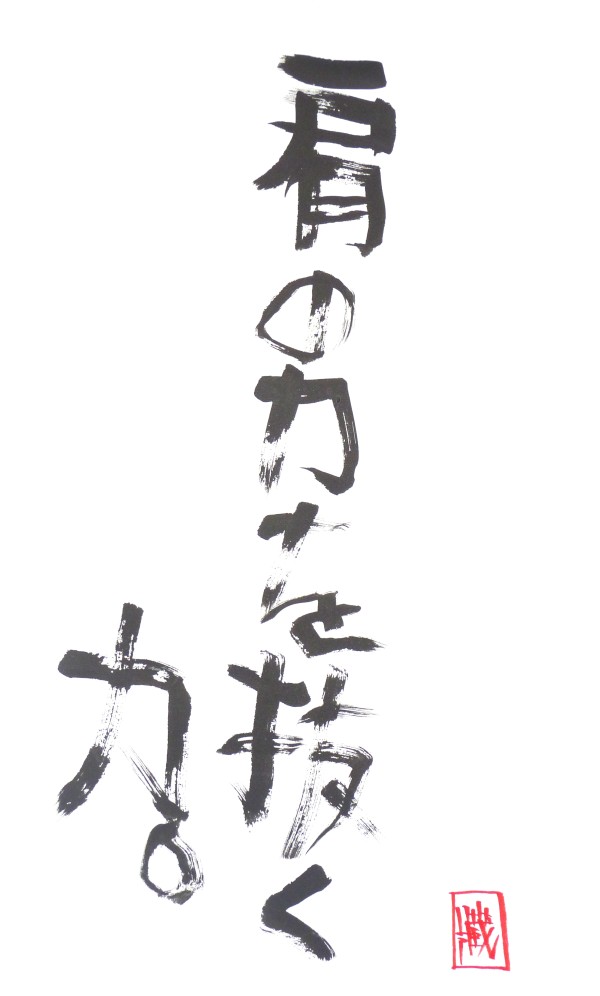 肩の力を抜く
力。